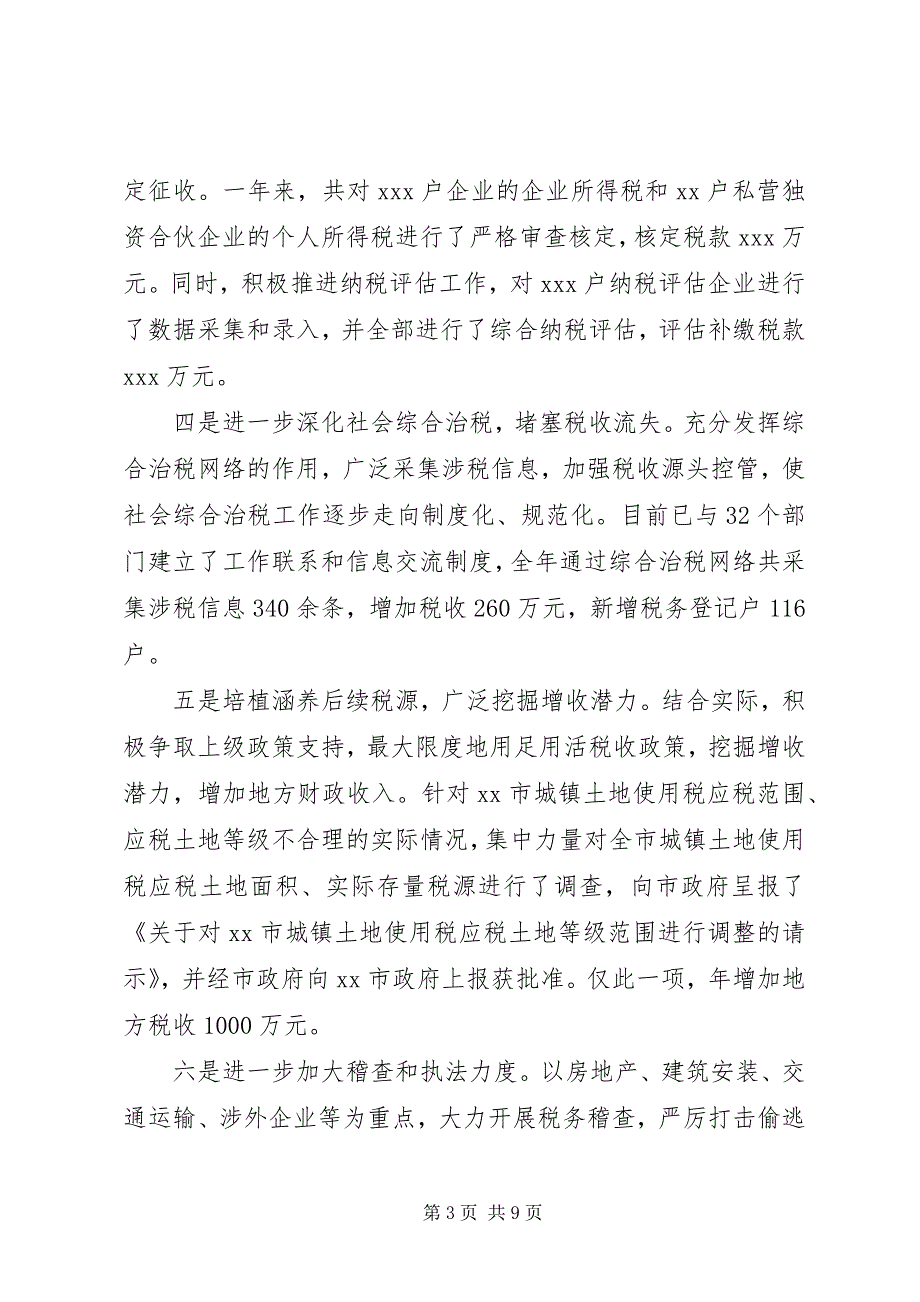 定征收。一年来，共对 xxx 户企业的企业所得税和 xx 户私营独
资合伙企业的个人所得税进行了严格审查核定，核定税款 xxx 万
元。同时，积极推进纳税评估工作，对 xxx 户纳税评估企业进行
了数据采集和录入，并全部进行了综合纳税评估，评估补缴税款
xxx 万元。
四是进一步深化社会综合治税，堵塞税收流失。充分发挥综
合治税网络的作用，广泛采集涉税信息，加强税收源头控管，使
社会综合治税工作逐步走向制度化、规范化。目前已与 32 个部
门建立了工作联系和信息交流制度，全年通过综合治税网络共采
集涉税信息 340 余条，增加税收 260 万元，新增税务登记户 116
户。
五是培植涵养后续税源，广泛挖掘增收潜力。结合实际，积
极争取上级政策支持，最大限度地用足用活税收政策，挖掘增收
潜力，增加地方财政收入。针对 xx 市城镇土地使用税应税范围、
应税土地等级不合理的实际情况，集中力量对全市城镇土地使用
税应税土地面积、实际存量税源进行了调查，向市政府呈报了
《关于对 xx 市城镇土地使用税应税土地等级范围进行调整的请
示》，并经市政府向 xx 市政府上报获批准。仅此一项，年增加地
方税收 1000 万元。
六是进一步加大稽查和执法力度。以房地产、建筑安装、交
通运输、涉外企业等为重点，大力开展税务稽查，严厉打击偷逃
第 3 页 共 9 页